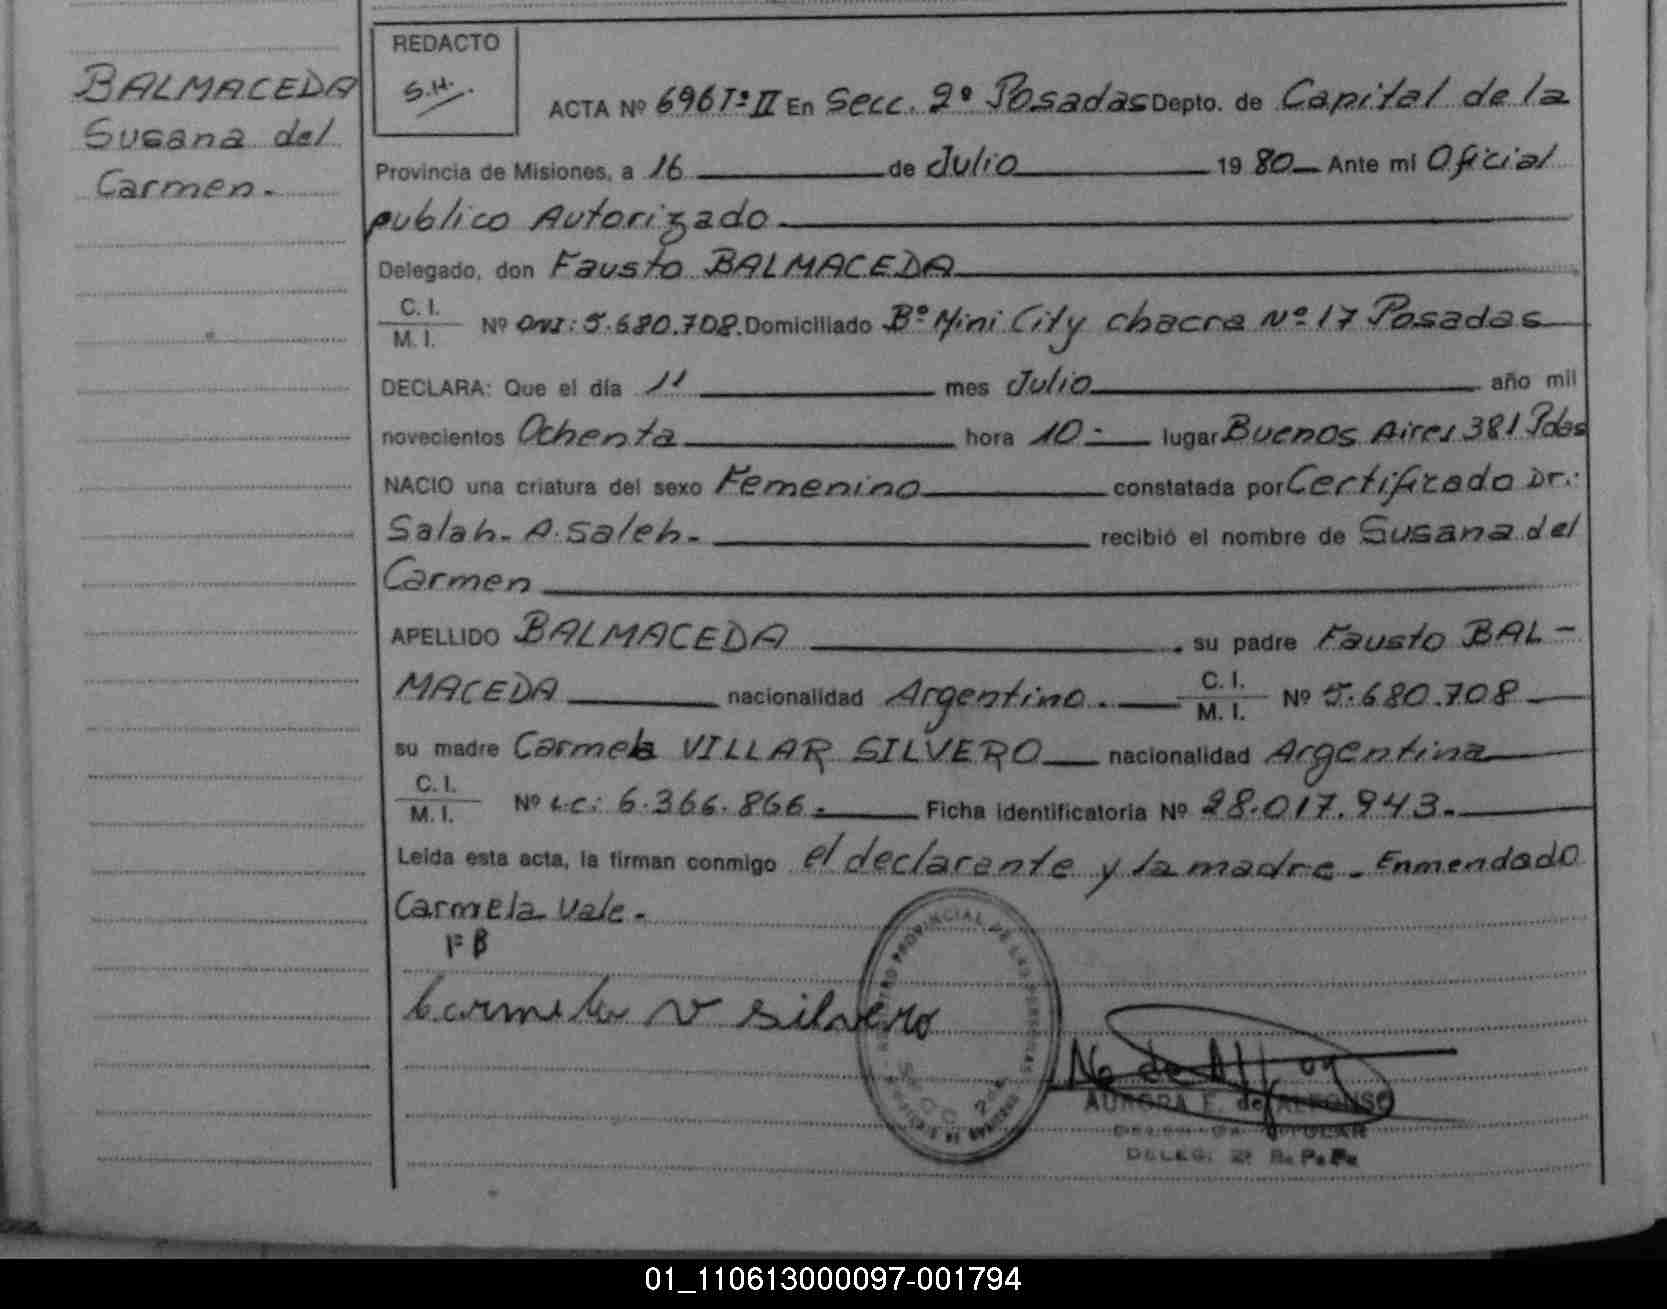 BALMACEDA
Susana del
Carmen.-
REDACTO
S.H.
ACTA Nº 696 Tº II En Secc. 2º Posadas Depto. de Capital de la
Provincia de Misiones, a 16 de Julio 1980 Ante mi Oficial
publico Autorizado
Delegado, don Fausto BALMACEDA
C. I.
M. I.
Nº DNI: 5.680.708. Domiciliado Bº Mini City chacra Nº 17 Posadas
DECLARA: Que el día 11 mes Julio año mil
novecientos Ochenta hora 10- lugar Buenos Aires 381 Pdas
NACIO una criatura del sexo Femenino constatada por Certificado Dr.:
Salah. A. Saleh.- recibió el nombre de Susana del
Carmen
APELLIDO BALMACEDA . su padre Fausto BAL-
MACEDA nacionalidad Argentino.- C. I.
M. I. Nº 5.680.708
su madre Carmela VILLAR SILVERO nacionalidad Argentina
C. I.
M. I.
Nº L.C: 6.366.866.- Ficha identificatoria Nº 28.017.943.-
Leída esta acta, la firman conmigo el declarante y la madre.- Enmendado
Carmela Vale.-
F B
Carmela V Silvero
REGISTRO PROVINCIAL DE LAS PERSONAS
SECC. 2da
AURORA E. de ALFONSO
TITULAR
DELEG. 2ª R. P. P.
01_110613000097-001794